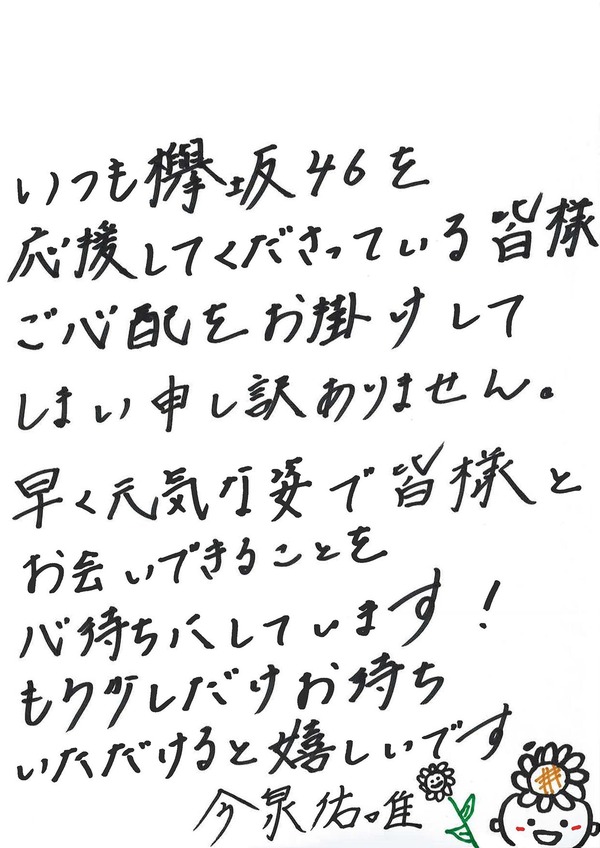 いつも欅坂46を
応援してくださっている皆様
ご心配をお掛けして
しまい申し訳ありません。
早く元気な姿で皆様と
お会いできることを
心待ちにしています!
もう少しだけお待ち
いただけると嬉しいです
今泉佑唯